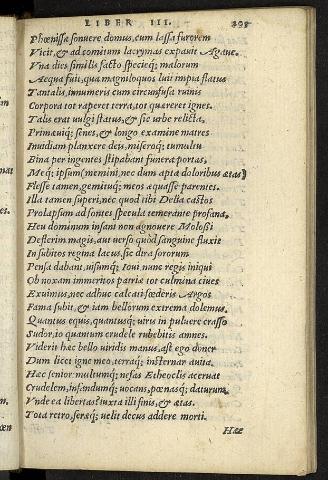 LIBER III. 398
Phœnissa sonuere domus, cum lassa furorem
Vicit, & ad comitum lacrymas expauit Agaue.
Vna dies similis facto specieq; malorum
Aequa fuit, qua magniloquos luit impia flatus
Tantalis, innumeris cum circunfusa ruinis
Corpora tot raperet terra, tot quæreret ignes.
Talis erat uulgi status, & sic urbe relicta,
Primæuiq; senes, & longo examine matres
Inuidiam planxere deis, miseroq; tumultu
Bina per ingentes stipabant funera portas,
Meq; ipsum (memini, nec dum apta doloribus ætas)
Flesse tamen, gemituq; meos æquasse parentes.
Illa tamen superi, nec quod tibi Delia castos
Prolapsum ad fontes specula temerante profana,
Heu dominum insani non agnouere Molossi
Deflerim magis, aut uerso quòd sanguine fluxit
In subitos regina lacus, sic dira sororum
Pensa dabant, uisumq; Ioui nunc regis iniqui
Ob noxam immeritos patriæ tot culmina ciues
Exuimus, nec adhuc calcati fœderis Argos
Fama subit, & iam bellorum extrema dolemus.
Quantus equis, quantusq; uiris in puluere crasso
Sudor, io quantum crudele rubebitis amnes.
Viderit hæc bello uiridis manus, ast ego donec
Dum licet igne meo, terraq; insternar auita.
Hæc senior multumq; nefas Etheoclis aceruat
Crudelem, infandumq; uocans, pœnasq; daturum.
Vnde ea libertas? iuxta illi finis, & ætas.
Tota retro, seræq; uelit decus addere morti.
Hæc